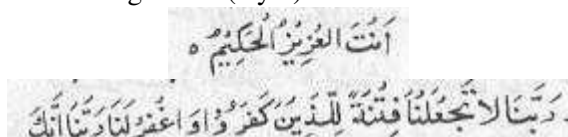 اَنْتَ الْعَزِيْزُ الْحَكِيْمُ ه
رَبَّنَا لَا تَجْعَلْنَا فِتْنَةً لِّلَّذِيْنَ كَفَرُوْا وَاغْفِرْ لَنَا رَبَّنَا اِنَّكَ